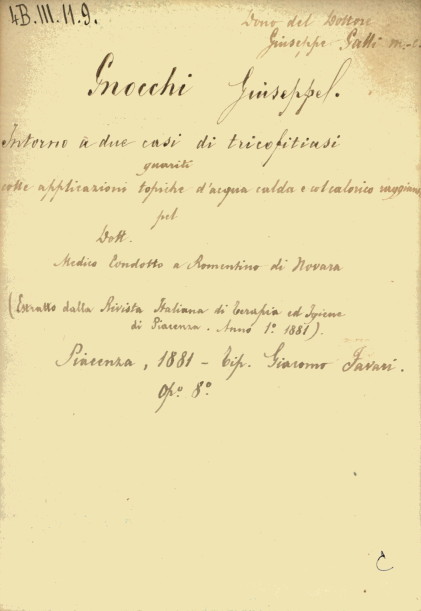 4B.III.11.9.
Dono del Dottore
Giuseppe Gatti m.-c.
Gnocchi Giuseppe.
Intorno a due casi di tricofitiasi
guariti
colle applicazioni topiche d'acqua calda e col calorico raggiante
pel
Dott.
Medico Condotto a Romentino di Novara
(Estratto dalla Rivista Italiana di Terapia ed Igiene
di Piacenza. Anno 1º 1881).
Piacenza, 1881 - Tip. Giacomo Favari.
Opº. 8º
C